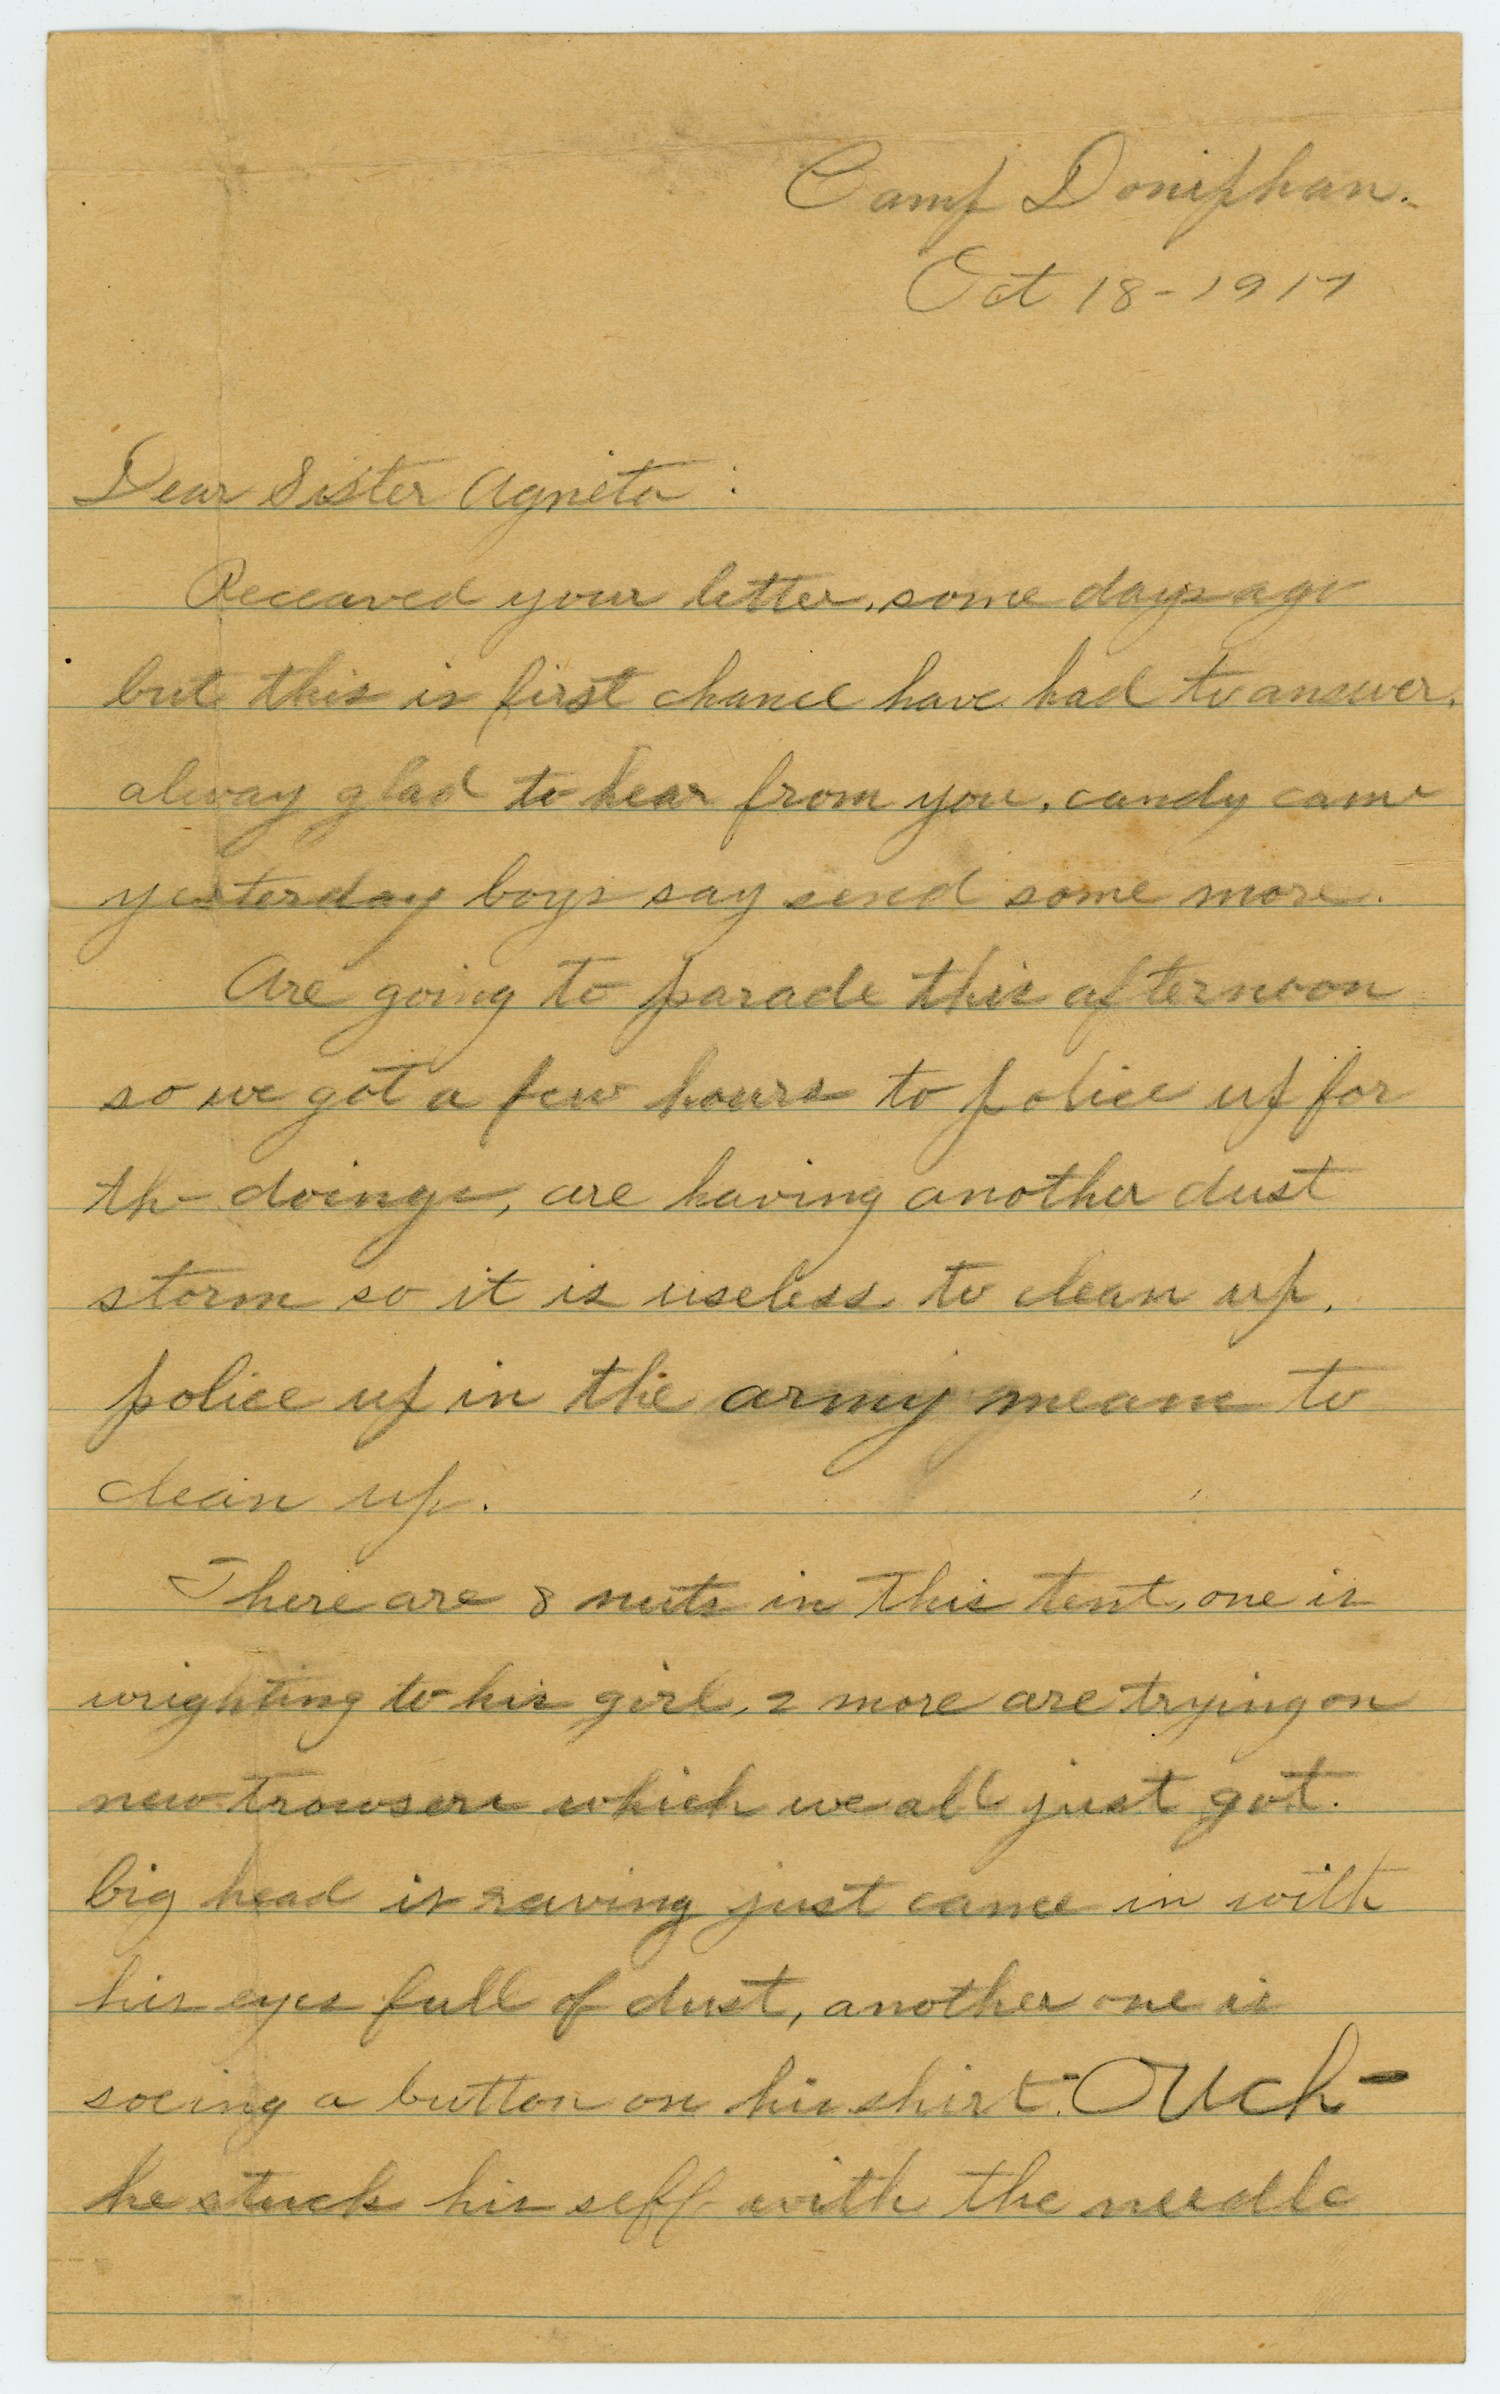 Camp Doniphan.
Oct 18-1917
Dear Sister Agneta:
Receaved your letter, some days ago
but this is first chance have had to answer,
alway glad to hear from you, candy came
yesterday boys say send some more.
Are going to parade this afternoon
so we got a few hours to police up for
the doings, are having another dust
storm so it is useless to clean up,
police up in the army means to
clean up.
There are 8 nuts in this tent, one is
wrighting to his girl, 2 more are trying on
new trowsers which we all just got.
big head is raving just came in with
his eyes full of dust, another one is
soeing a button on his shirt. Ouch-
he stuck his self with the needle